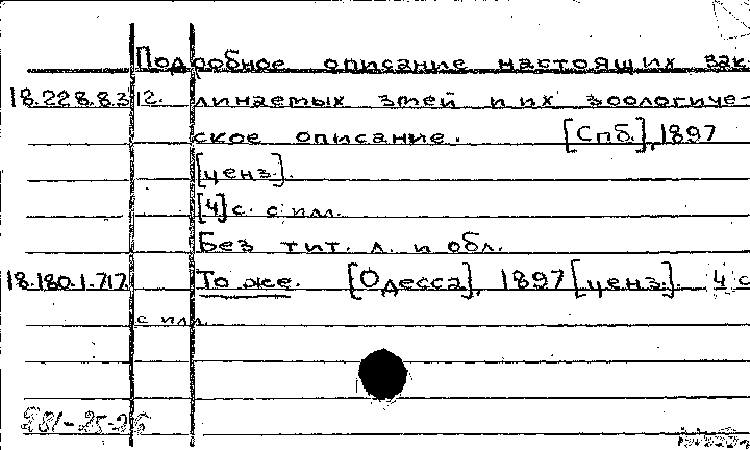 Подробное описание настоящих зак-
18.228.8.312. линаемых змей и их зоологиче-
ское описание. [Спб.], 1897
[ценз.].
[4] с. с илл.
Без тит. л. и обл.
18.180.1.717 То же. [Одесса], 1897 [ценз.]. 4 с
с илл.
281-25-26